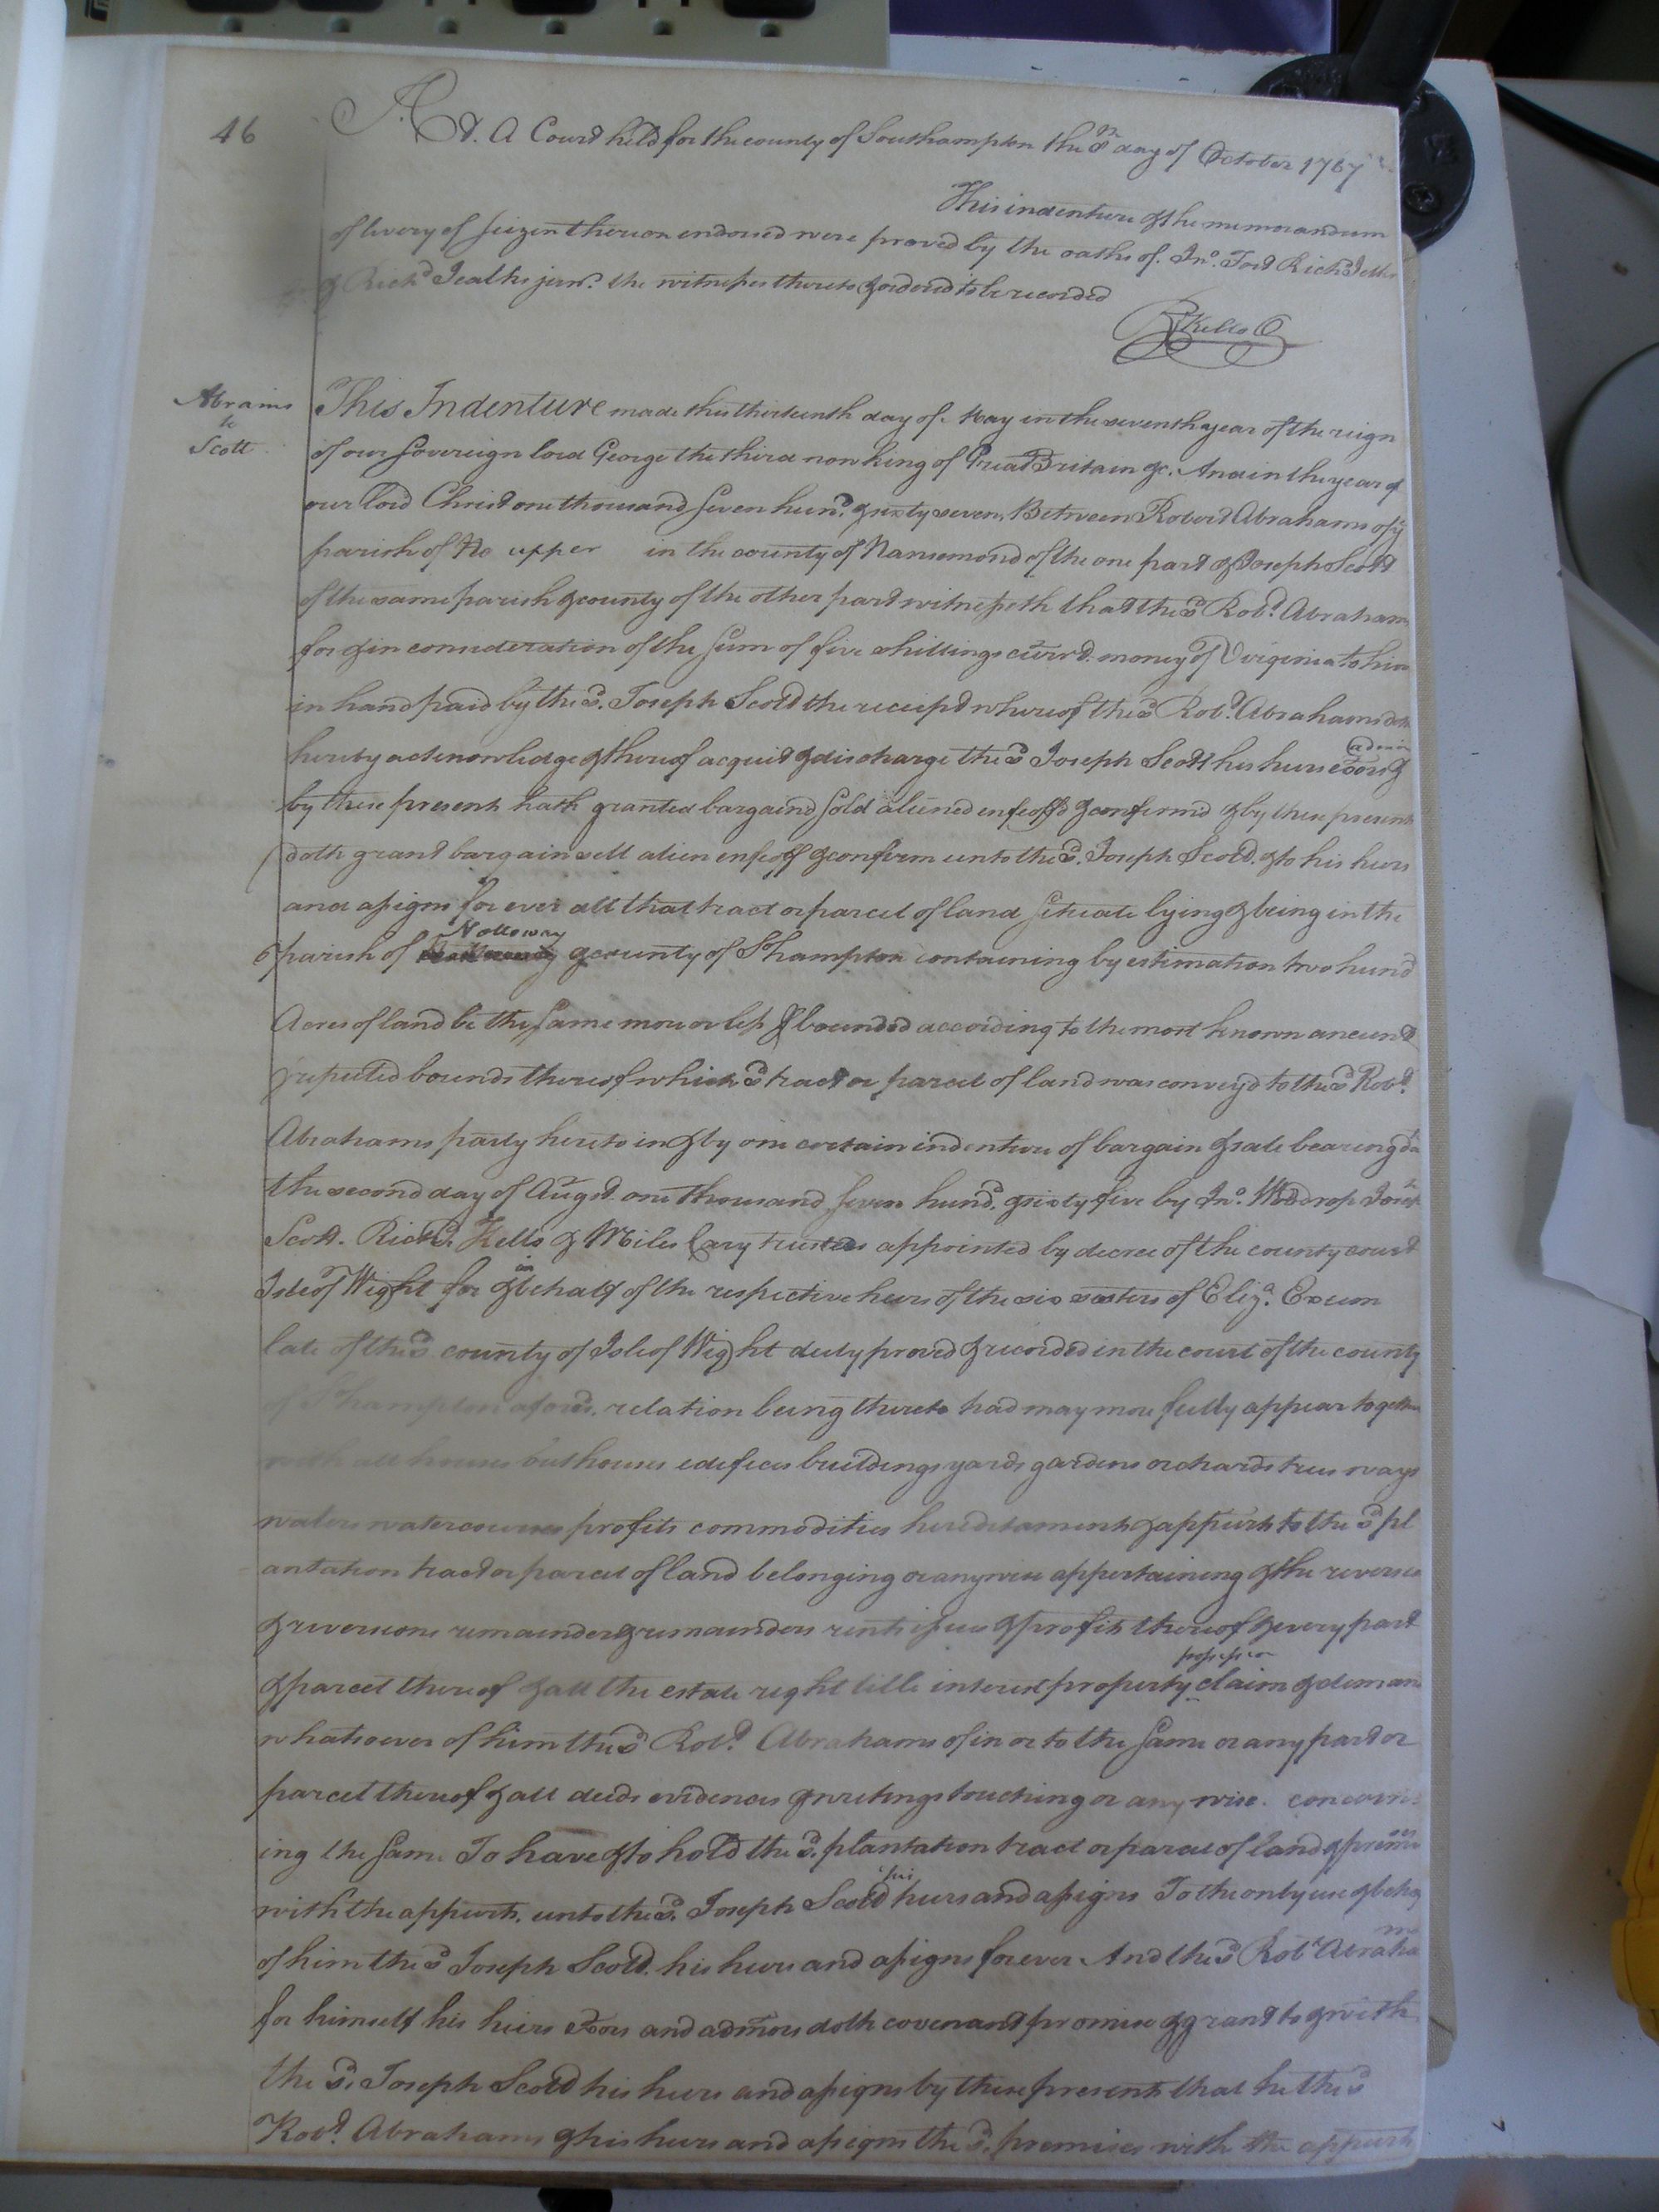 46
At. A Court held for the county of Southampton the 8th day of October 1767
This indenture & the memorandum
of livery of seizen thereon endorsed were proved by the oaths of. Jno. Tost Richd
& Richd junr. the witnesses thereto & ordered to be recorded
RKello C
Abrams
to
Scott
This Indenture made this thirteenth day of May in the seventh year of the reign
of our sovereign lord George the third now king of Great Britain &c. And in the year of
our lord Christ one thousand seven hund. & sixty seven, Between Robert Abrahams of ye
parish of the upper in the county of Nansemond of the one part & Joseph Scott
of the same parish & county of the other part witnesseth that the sd Robt. Abrahams
for & in consideration of the sum of five shillings currt. money of Virginia to him
in hand paid by the sd. Joseph Scott the receipt whereof the sd Robt. Abrahams doth
hereby acknowledge & thereof acquit & discharge the sd Joseph Scott his heirs exors admin &
by these present hath granted bargaind sold aliened enfeoffd & confirmd & by these presents
doth grant bargain sell alien enfeoff & confirm unto the sd. Joseph Scott. & to his heirs
and assigns for ever all that tract or parcel of land situate lying & being in the
parish of Nolloway & county of Shampton containing by estimation two hund
Acres of land be the same more or less & bounded according to the most known ancient
& reputed bounds thereof which sd tract or parcel of land was conveyd to the sd Robt.
Abrahams party hereto in & by one certain indenture of bargain & sale bearing da
the second day of Augst. one thousand seven hund. & sixty five by Jno. Woddrop Joseph
Scott. Richd. Kello & Miles Cary trustees appointed by decree of the county court
Isle of Wight for & in behalf of the respective heirs of the six sisters of Eliza. Exum
late of the sd. county of Isle of Wight duly proved & recorded in the court of the county
of Shampton aforesd. relation being thereto had may more fully appear together
with all houses outhouses edefices buildings yards gardens orchards trees ways
waters watercourses profits commodities hereditaments & appurts to the sd pl
antation tract or parcel of land belonging or anywise appertaining & the reversion
& reversions remainder & remainders rents issues & profits thereof & every part
& parcel thereof & all the estate right title interest property possession claim & deman
whatsoever of him the sd Robt. Abrahams of in or to the same or any part or
parcel thereof & all deeds evidences & writings touching or any wise. concern
ing the same To have & to hold the sd. plantation tract or parcel of land & premises
with the appurts. unto the sd. Joseph Scott his heirs and assigns To the only use & behoof
of him the sd Joseph Scott. his heirs and assigns for ever And the sd Robt Abrahams
for himself his heirs exors and admors doth covenant promise & grant to & with
the sd. Joseph Scott his heirs and assigns by these presents that he the sd
Robt. Abrahams & his heirs and assigns the sd. premises with the appurts